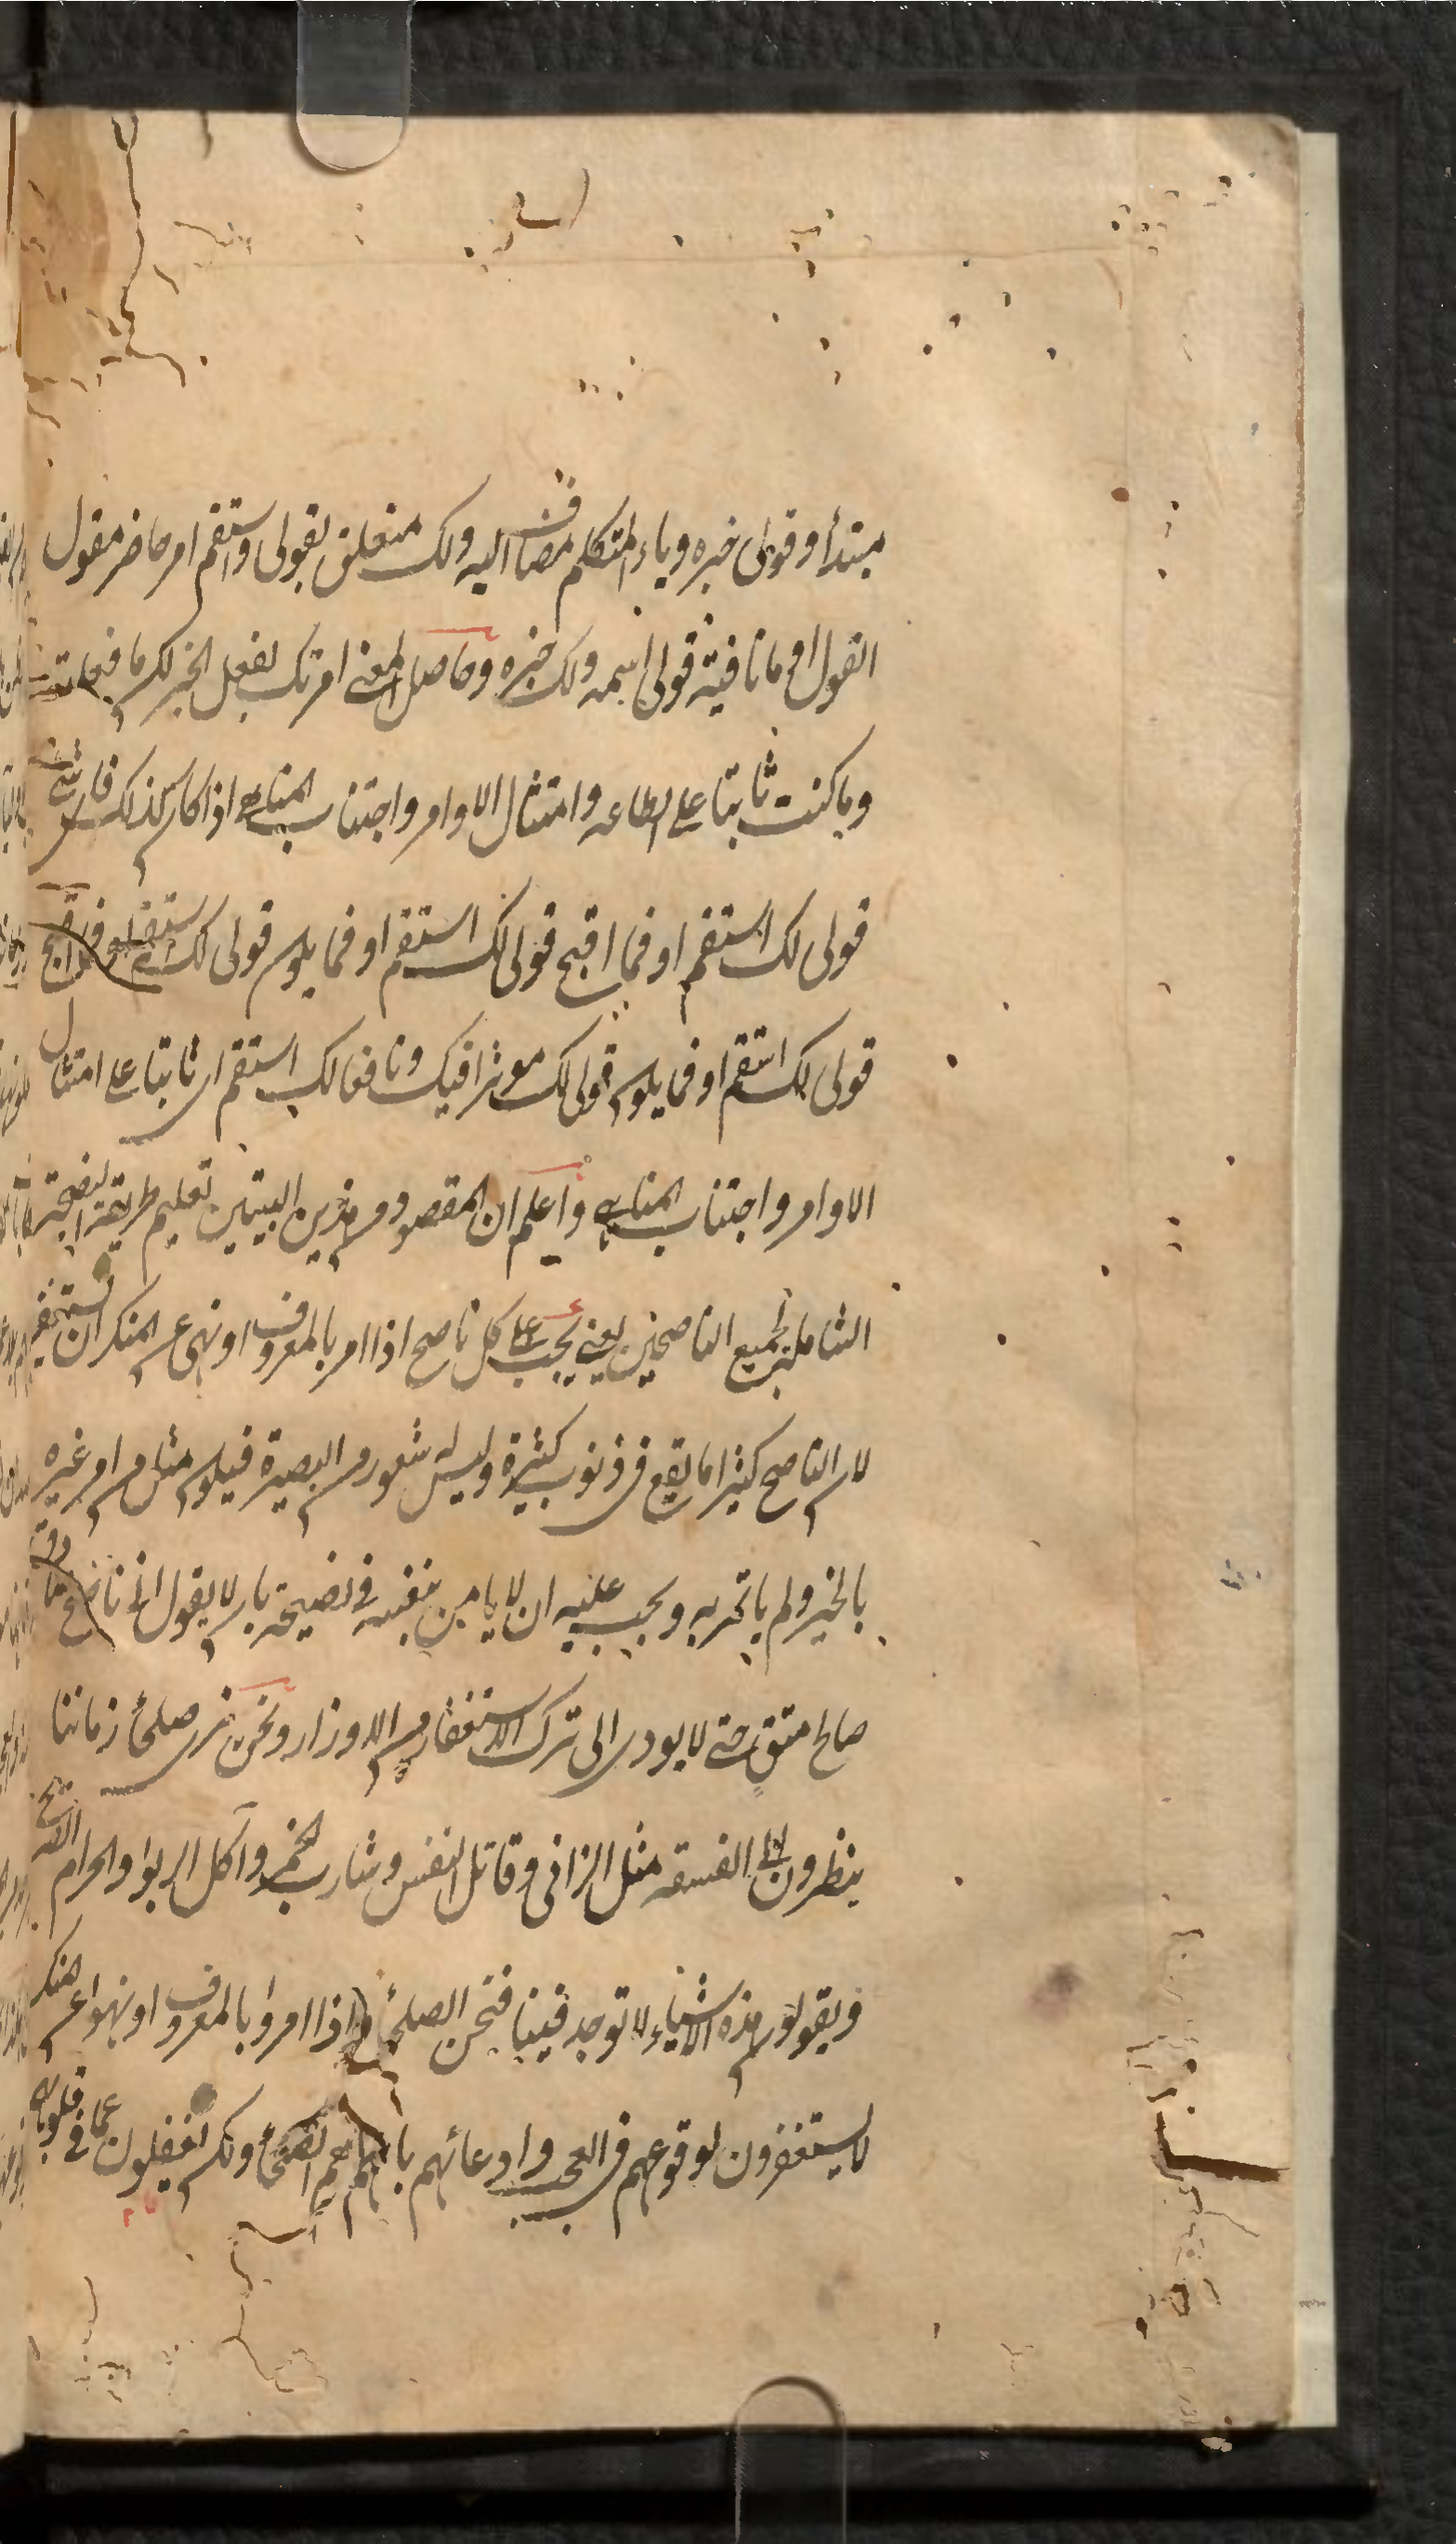 مبتدأ وقولى خبره وياء المتكلم مضاف اليه ولك متعلق بقولى واستقم امر حاضر مقول
القول او ما نافية قولى اسمه ولك خبره وحاصل المعنى امرتك بفعل الخير لكن ما فعلت
وما كنت ثابتا على الطاعه وامتثال الاوامر واجتناب المناهى اذا كان كذلك فاى شئ
قولى لك استقم او فما اقبح قولى لك استقم او فما يكون قولى لك استقم
قولى لك استقم او فما يكون قولى لك موثرا فيك ونافعا لك استقم اى ثابتا على امتثال
الاوامر واجتناب المناهى واعلم ان المقصود من هذين البيتين تعليم طريقة النصيحة
الشاملة لجميع الناصحين يعنى يجب على كل ناصح اذا امر بالمعروف او نهى عن المنكر ان يستغفر
لان الناصح كثيرا ما يقع فى ذنوب كثيرة وليس له شعور من البصيرة فيكون مثل من امر غيره
بالخير ولم يأتمر به ويجب عليه ان لا يامن بنفسه فى نصيحته بان لا يقول انى ناصح
صالح متق حتى لا يودى الى ترك الاستغفار من الاوزار ونحن نرى صلحأ زماننا
ينظرون الى الفسقه مثل الزانى وقاتل النفس وشارب الخمر وآكل الربوا والحرام
ويقولون هذه الاشياء لا توجد فينا فنحن الصلحأ اذا امروا بالمعروف او نهوا عن المنكر
لا يستغفرون لوقوعهم فى العجب وادعائهم بانهم هم الصلحأ ولكن يغفلون عما فى قلوبهم